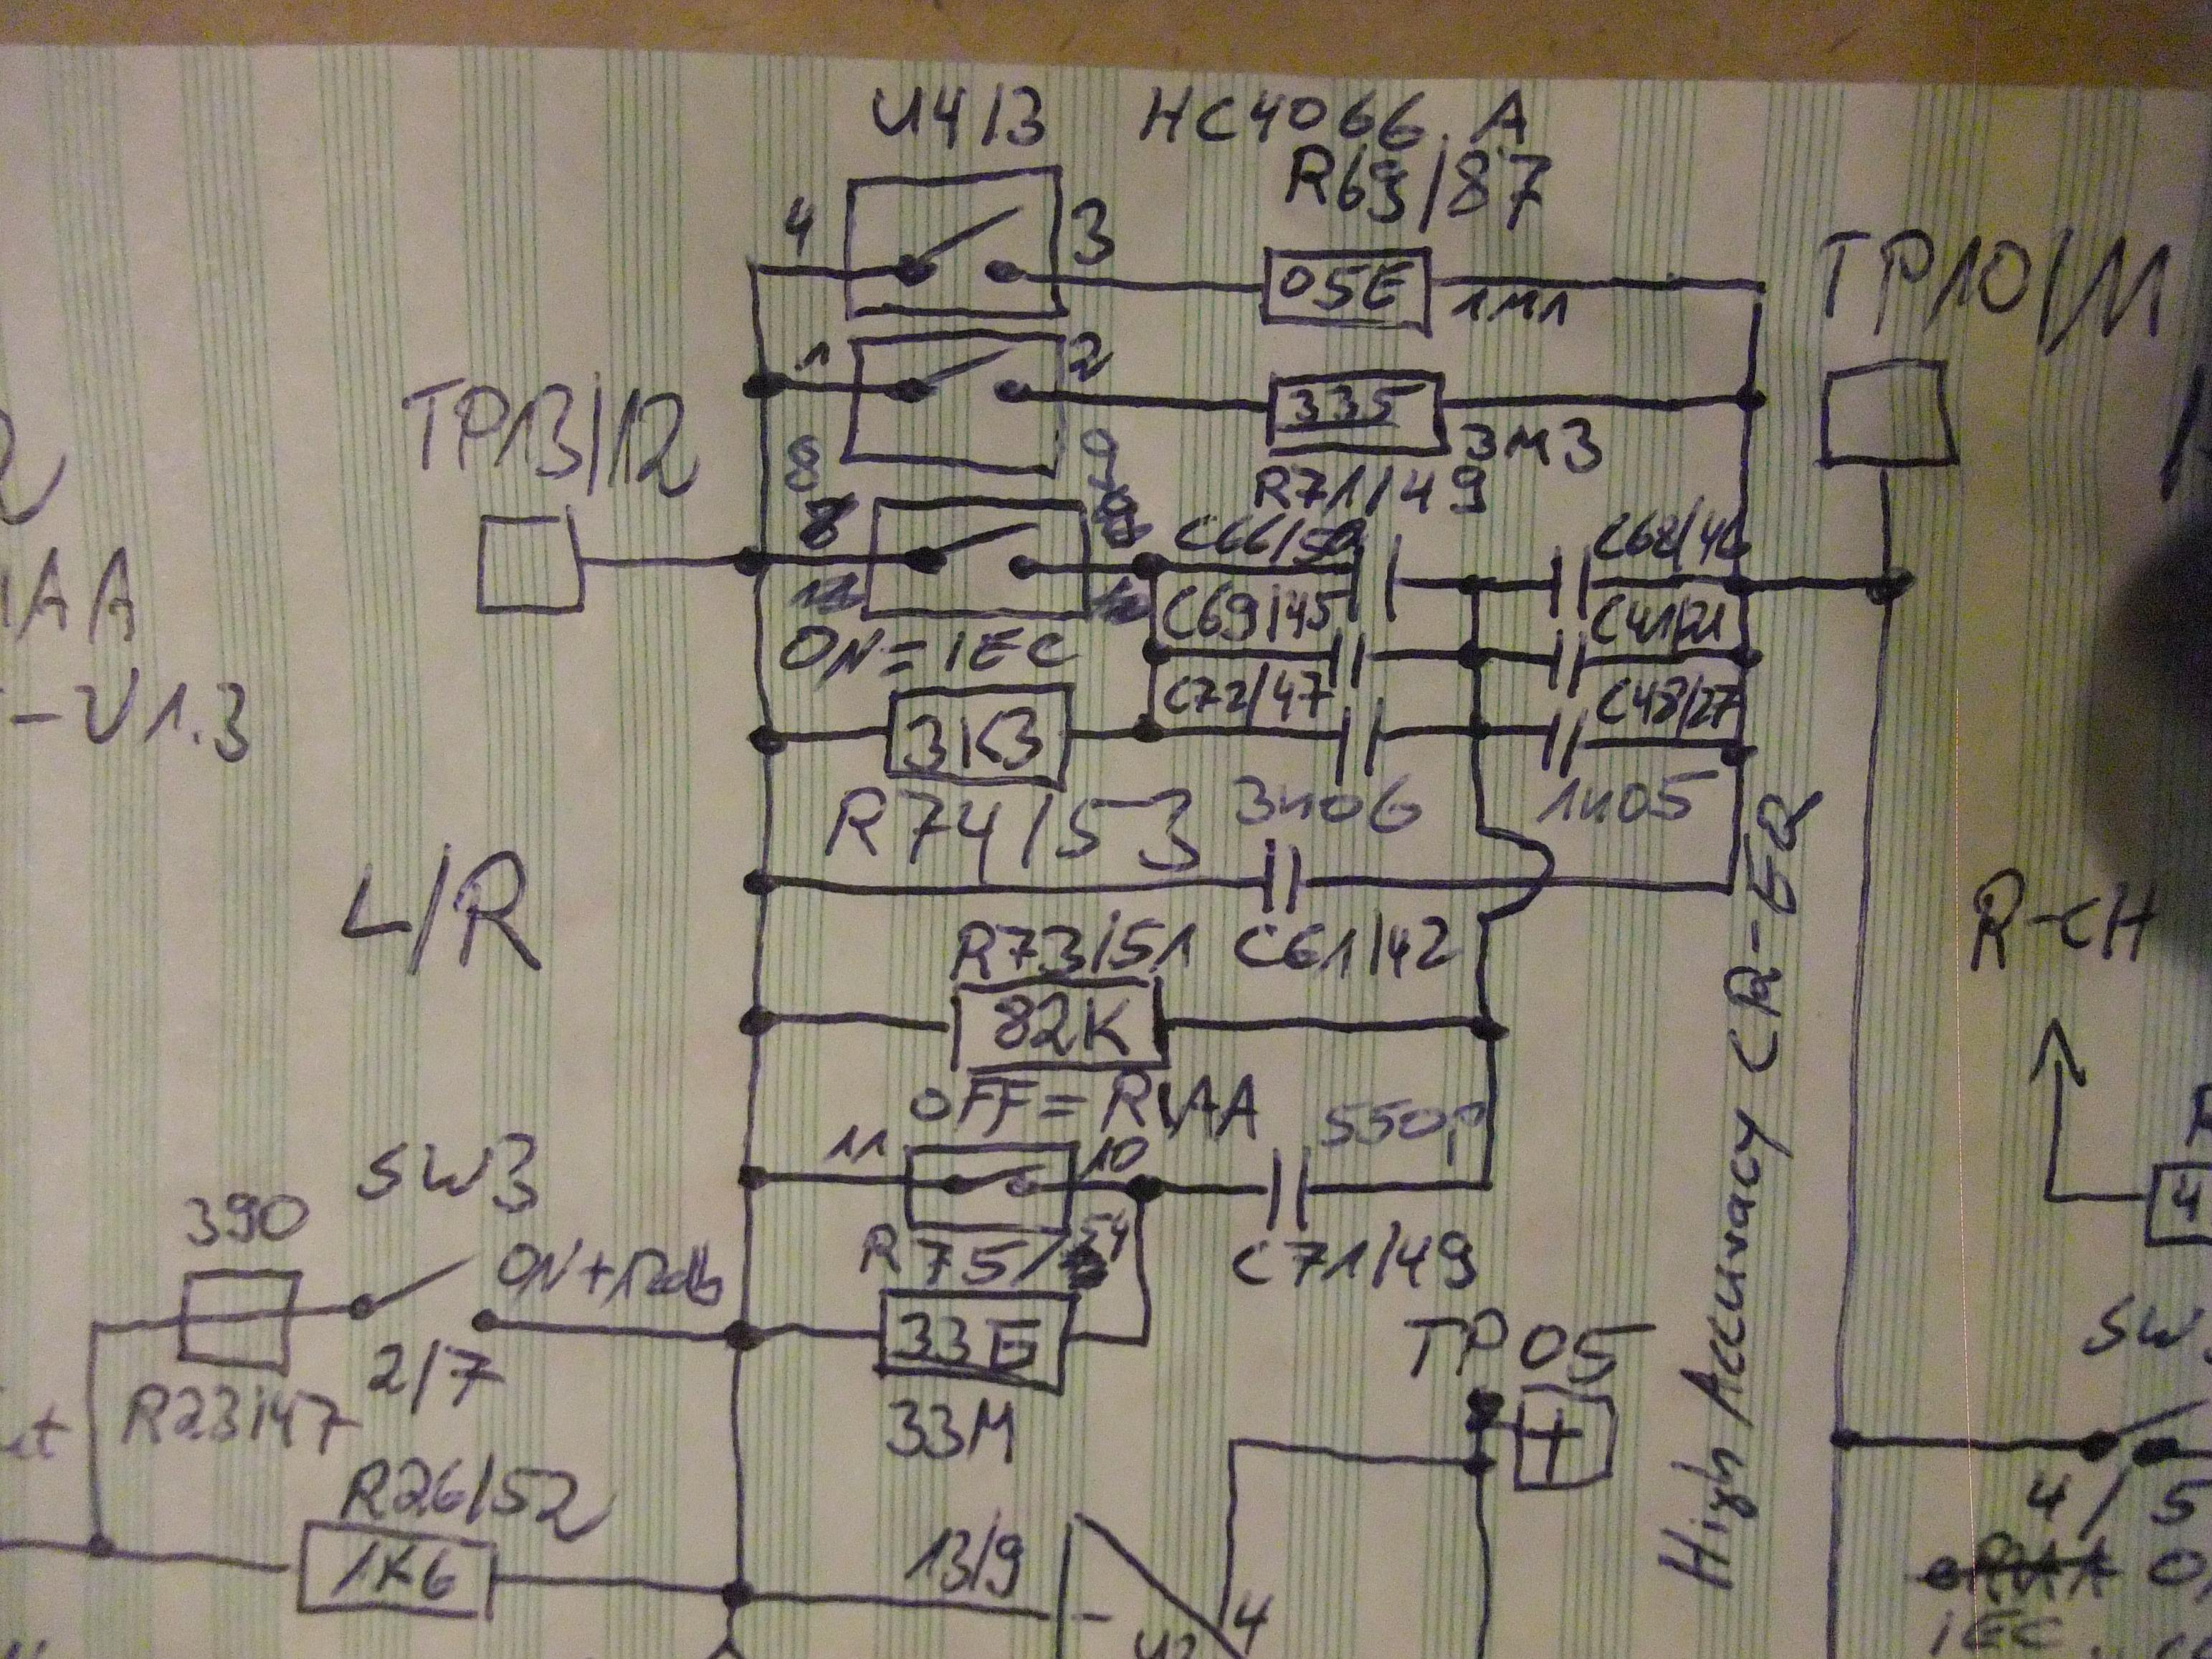 U4/3 HC4066.A
R69/87
4 3
05E
1M1
TP10/11
1 2
335
3M3
TP13/12
R71/49
8 9
8
C68/46
C69/45
C41/21
ON=IEC
AA
-V1.3
C72/47
C48/27
3K3
3n06 1n05
R74/53
L/R
R73/51 C61/42
R-CH
82K
OFF=RIAA
550p
SW3
11 10
390
R75/54
C71/49
ON+12db
33E
TP05
2/7
R23/47
33M
High Accuracy CR-ER
SW
4/5
R26/52
1K6
13/9
-
4
IEC